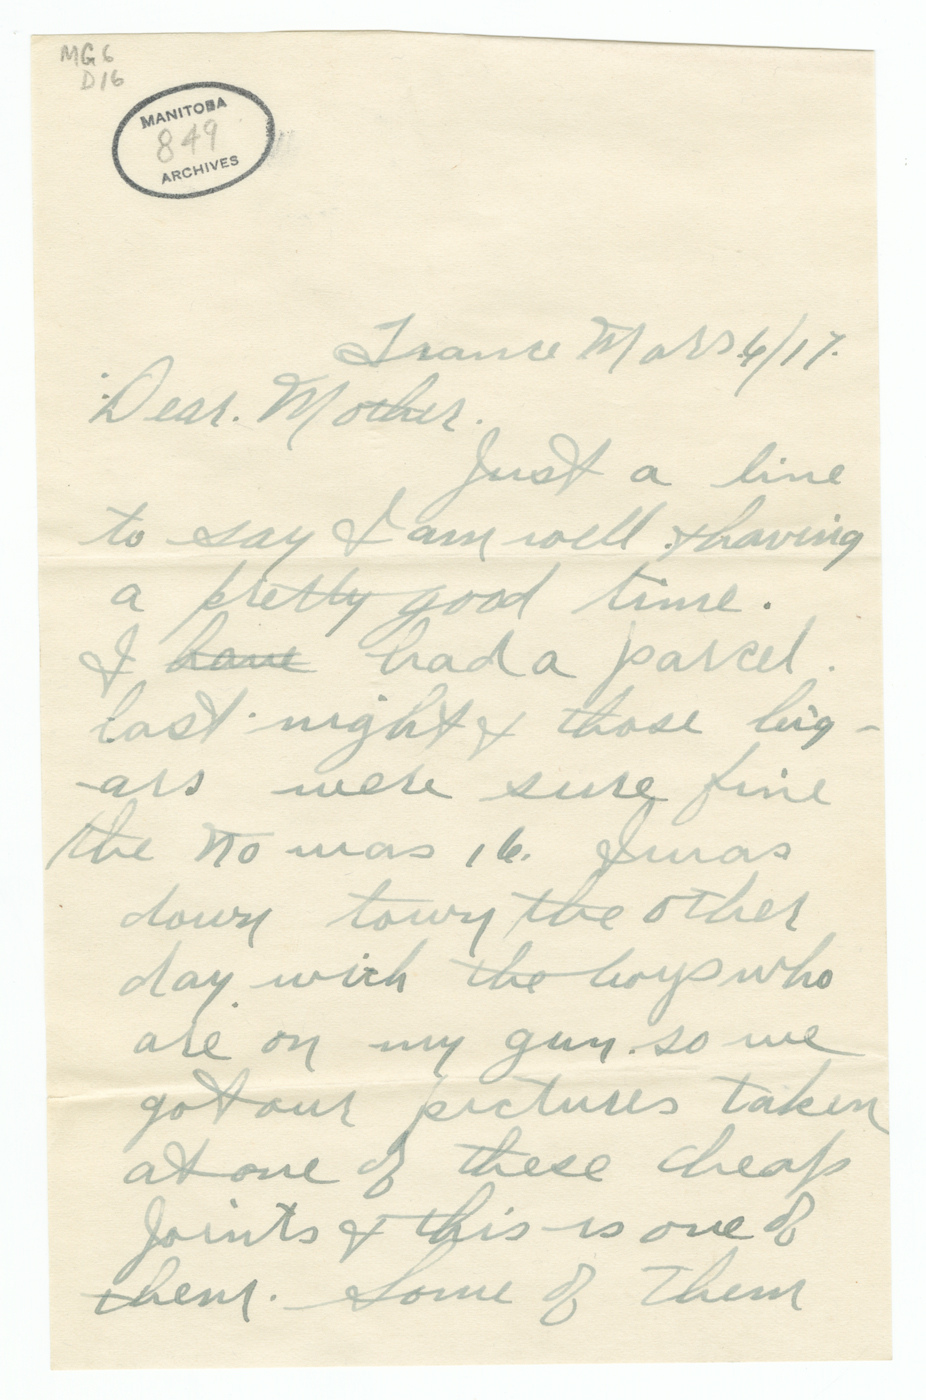 MG6
D16
MANITOBA
849
ARCHIVES
France Mars 6/17.
Dear. Mother.
Just a line
to say I am well & having
a pretty good time.
I have had a parcel.
last night & those cig-
-ars were sure fine
the No was 16. I was
down town the other
day with the boys who
are on my gun. so we
got our pictures taken
at one of these cheap
Joints & this is one of
them. Some of them